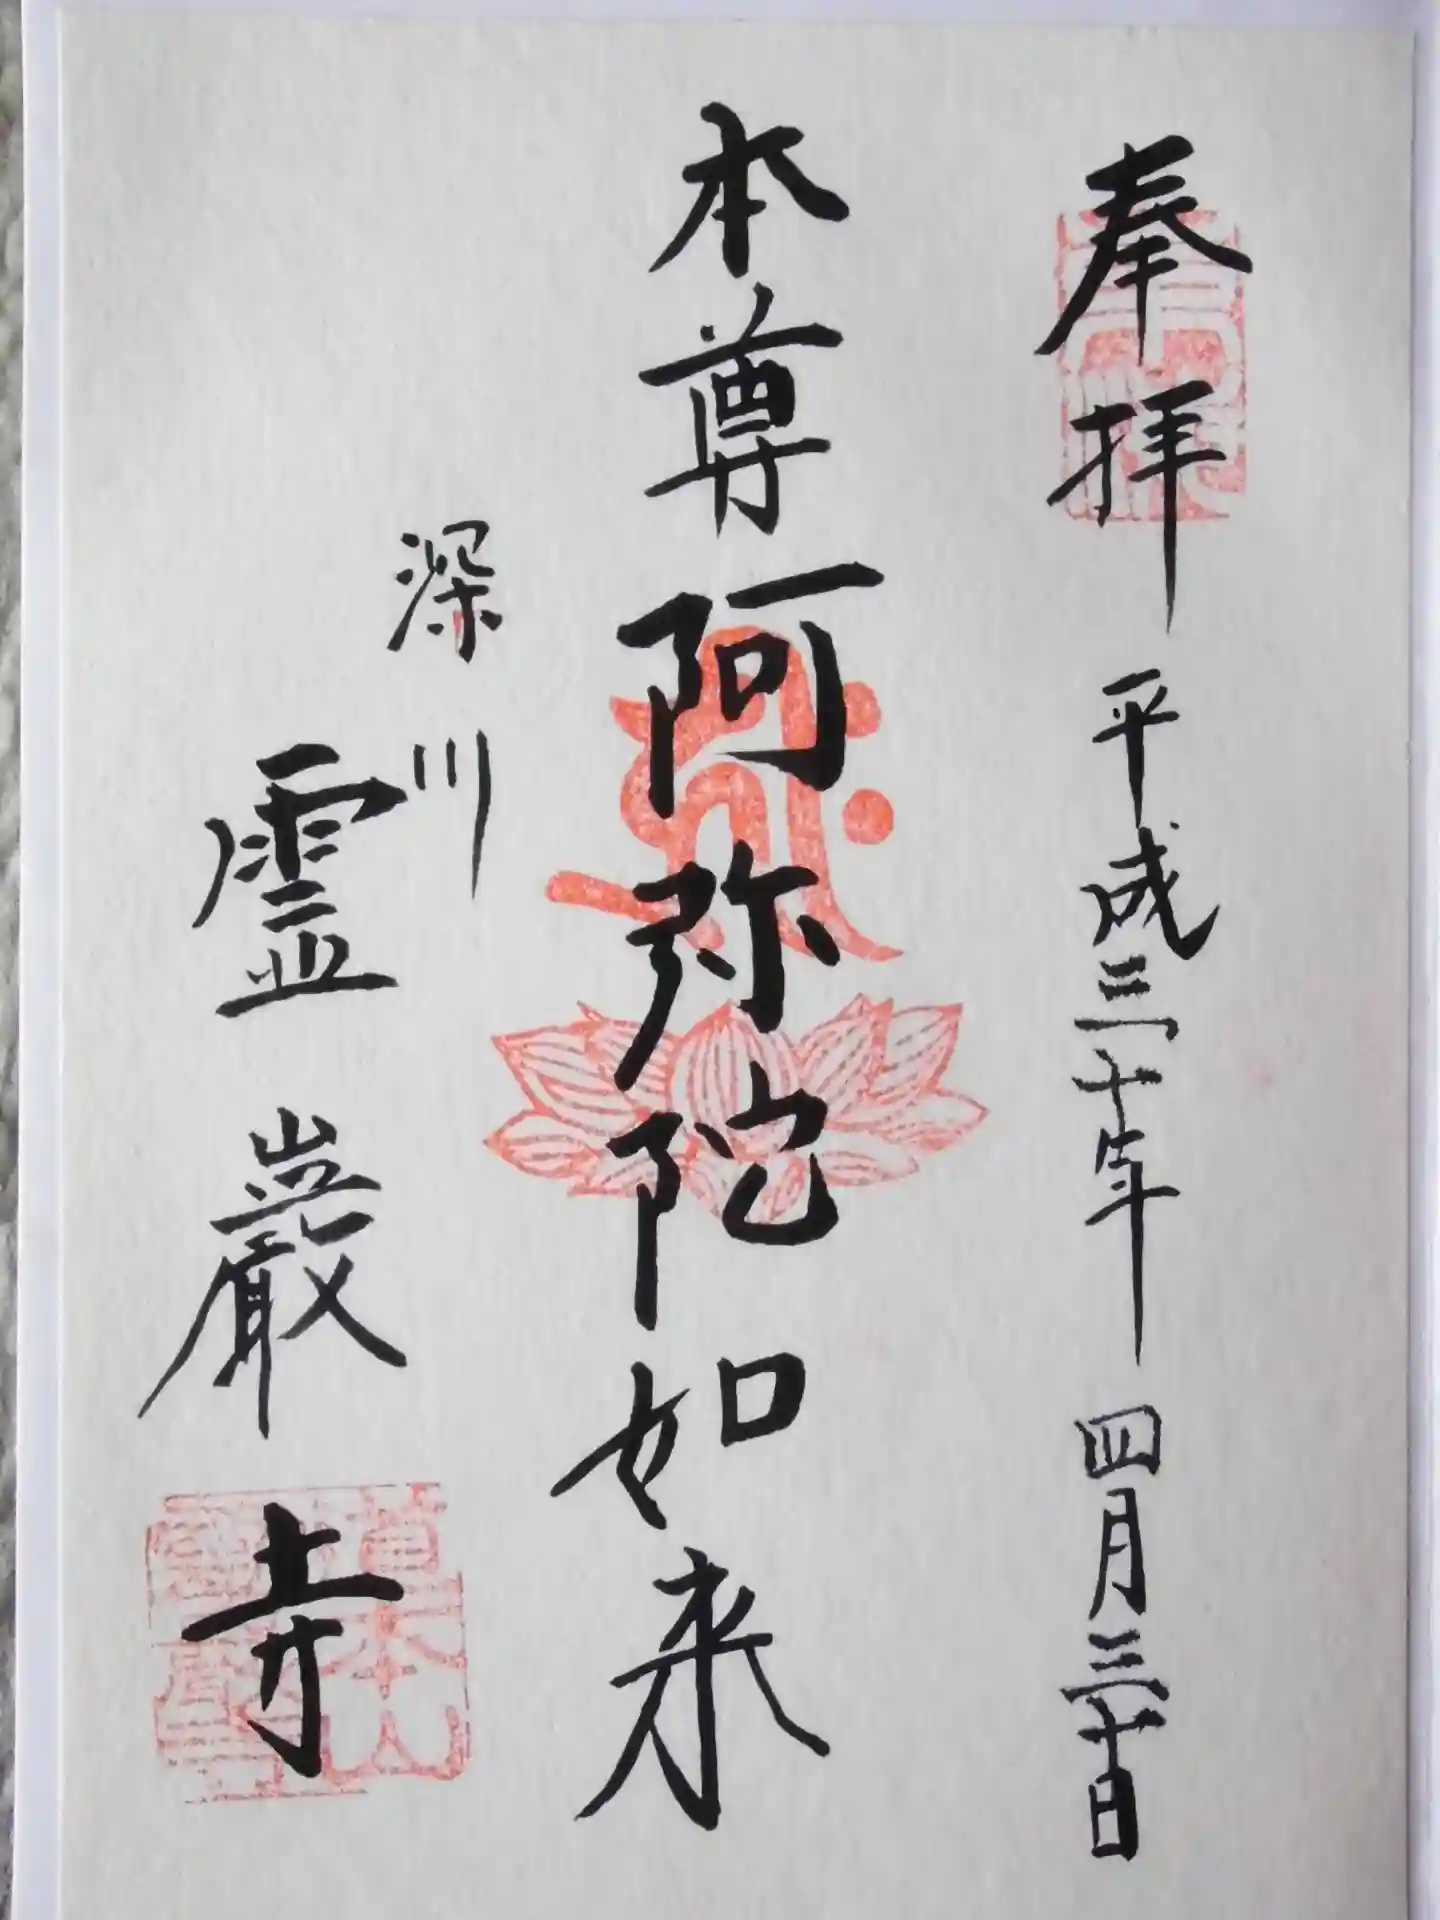 奉拝 平成三十年 四月三十日
本尊 阿弥陀如来
深川
霊巌寺